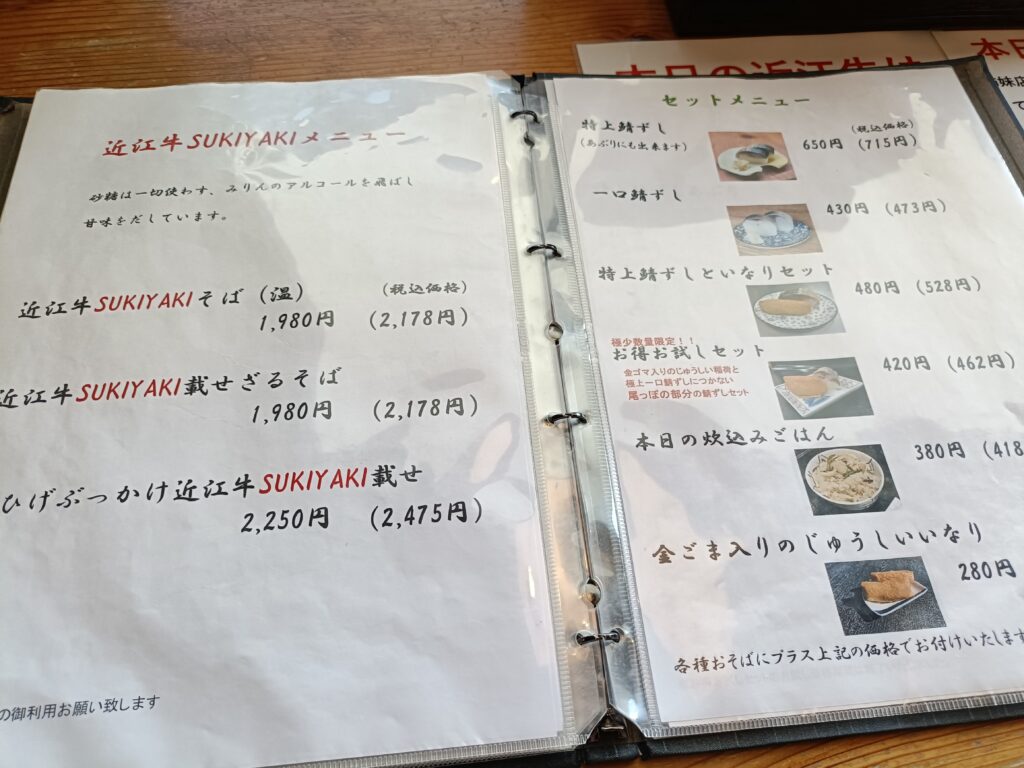 近江牛SUKIYAKIメニュー
砂糖は一切使わす、みりんのアルコールを飛ばし
甘味をだしています。
近江牛SUKIYAKIそば（温）
（税込価格）
1,980円 （2,178円）
近江牛SUKIYAKI載せざるそば
1,980円 （2,178円）
ひげぶっかけ近江牛SUKIYAKI載せ
2,250円 （2,475円）
の御利用お願い致します
本日の近江牛
本日
セットメニュー
特上鯖ずし
（あぶりにも出来ます）
（税込価格）
650円 （715円）
一口鯖ずし
430円 （473円）
特上鯖ずしといなりセット
480円 （528円）
極少数量限定！！
お得お試しセット
420円 （462円）
金ゴマ入りのじゅうしい稲荷と
極上一口鯖ずしにつかない
尾っぽの部分の鯖ずしセット
本日の炊込みごはん
380円 （418
金ごま入りのじゅうしいいなり
280円
各種おそばにプラス上記の価格でお付けいたします